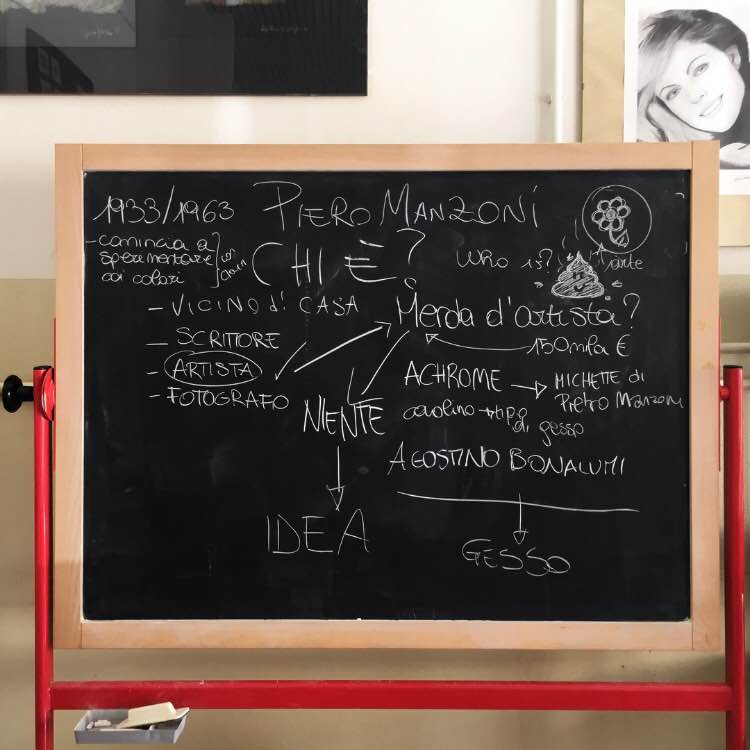 1933/1963 PIERO MANZONI
- comincia a
sperimentare
coi colori
CHI È?
WHO IS?
arte
- VICINO di CASA
- SCRITTORE
- ARTISTA
- FOTOGRAFO
Merda d'artista?
130mila €
ACHROME → MICHETTE di
Pietro Manzoni
caolino → tipo
di gesso
NIENTE
AGOSTINO BONALUMI
IDEA
GESSO